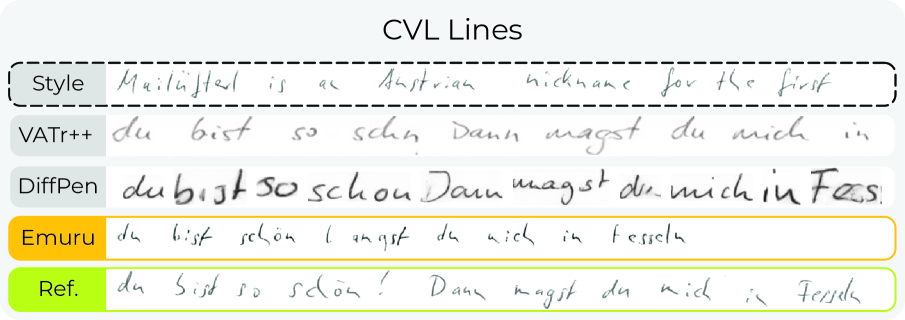 CVL Lines
Style Mailüfterl is an Austrian nickname for the first
VATr++ du bist so schn Dann magst du mich in
DiffPen du bist so schon Dann magst du mich in Fees.
Emuru du bist schön l angst du mich in tesseln
Ref. du bist so schön! Dann magst du mich in Fesseln